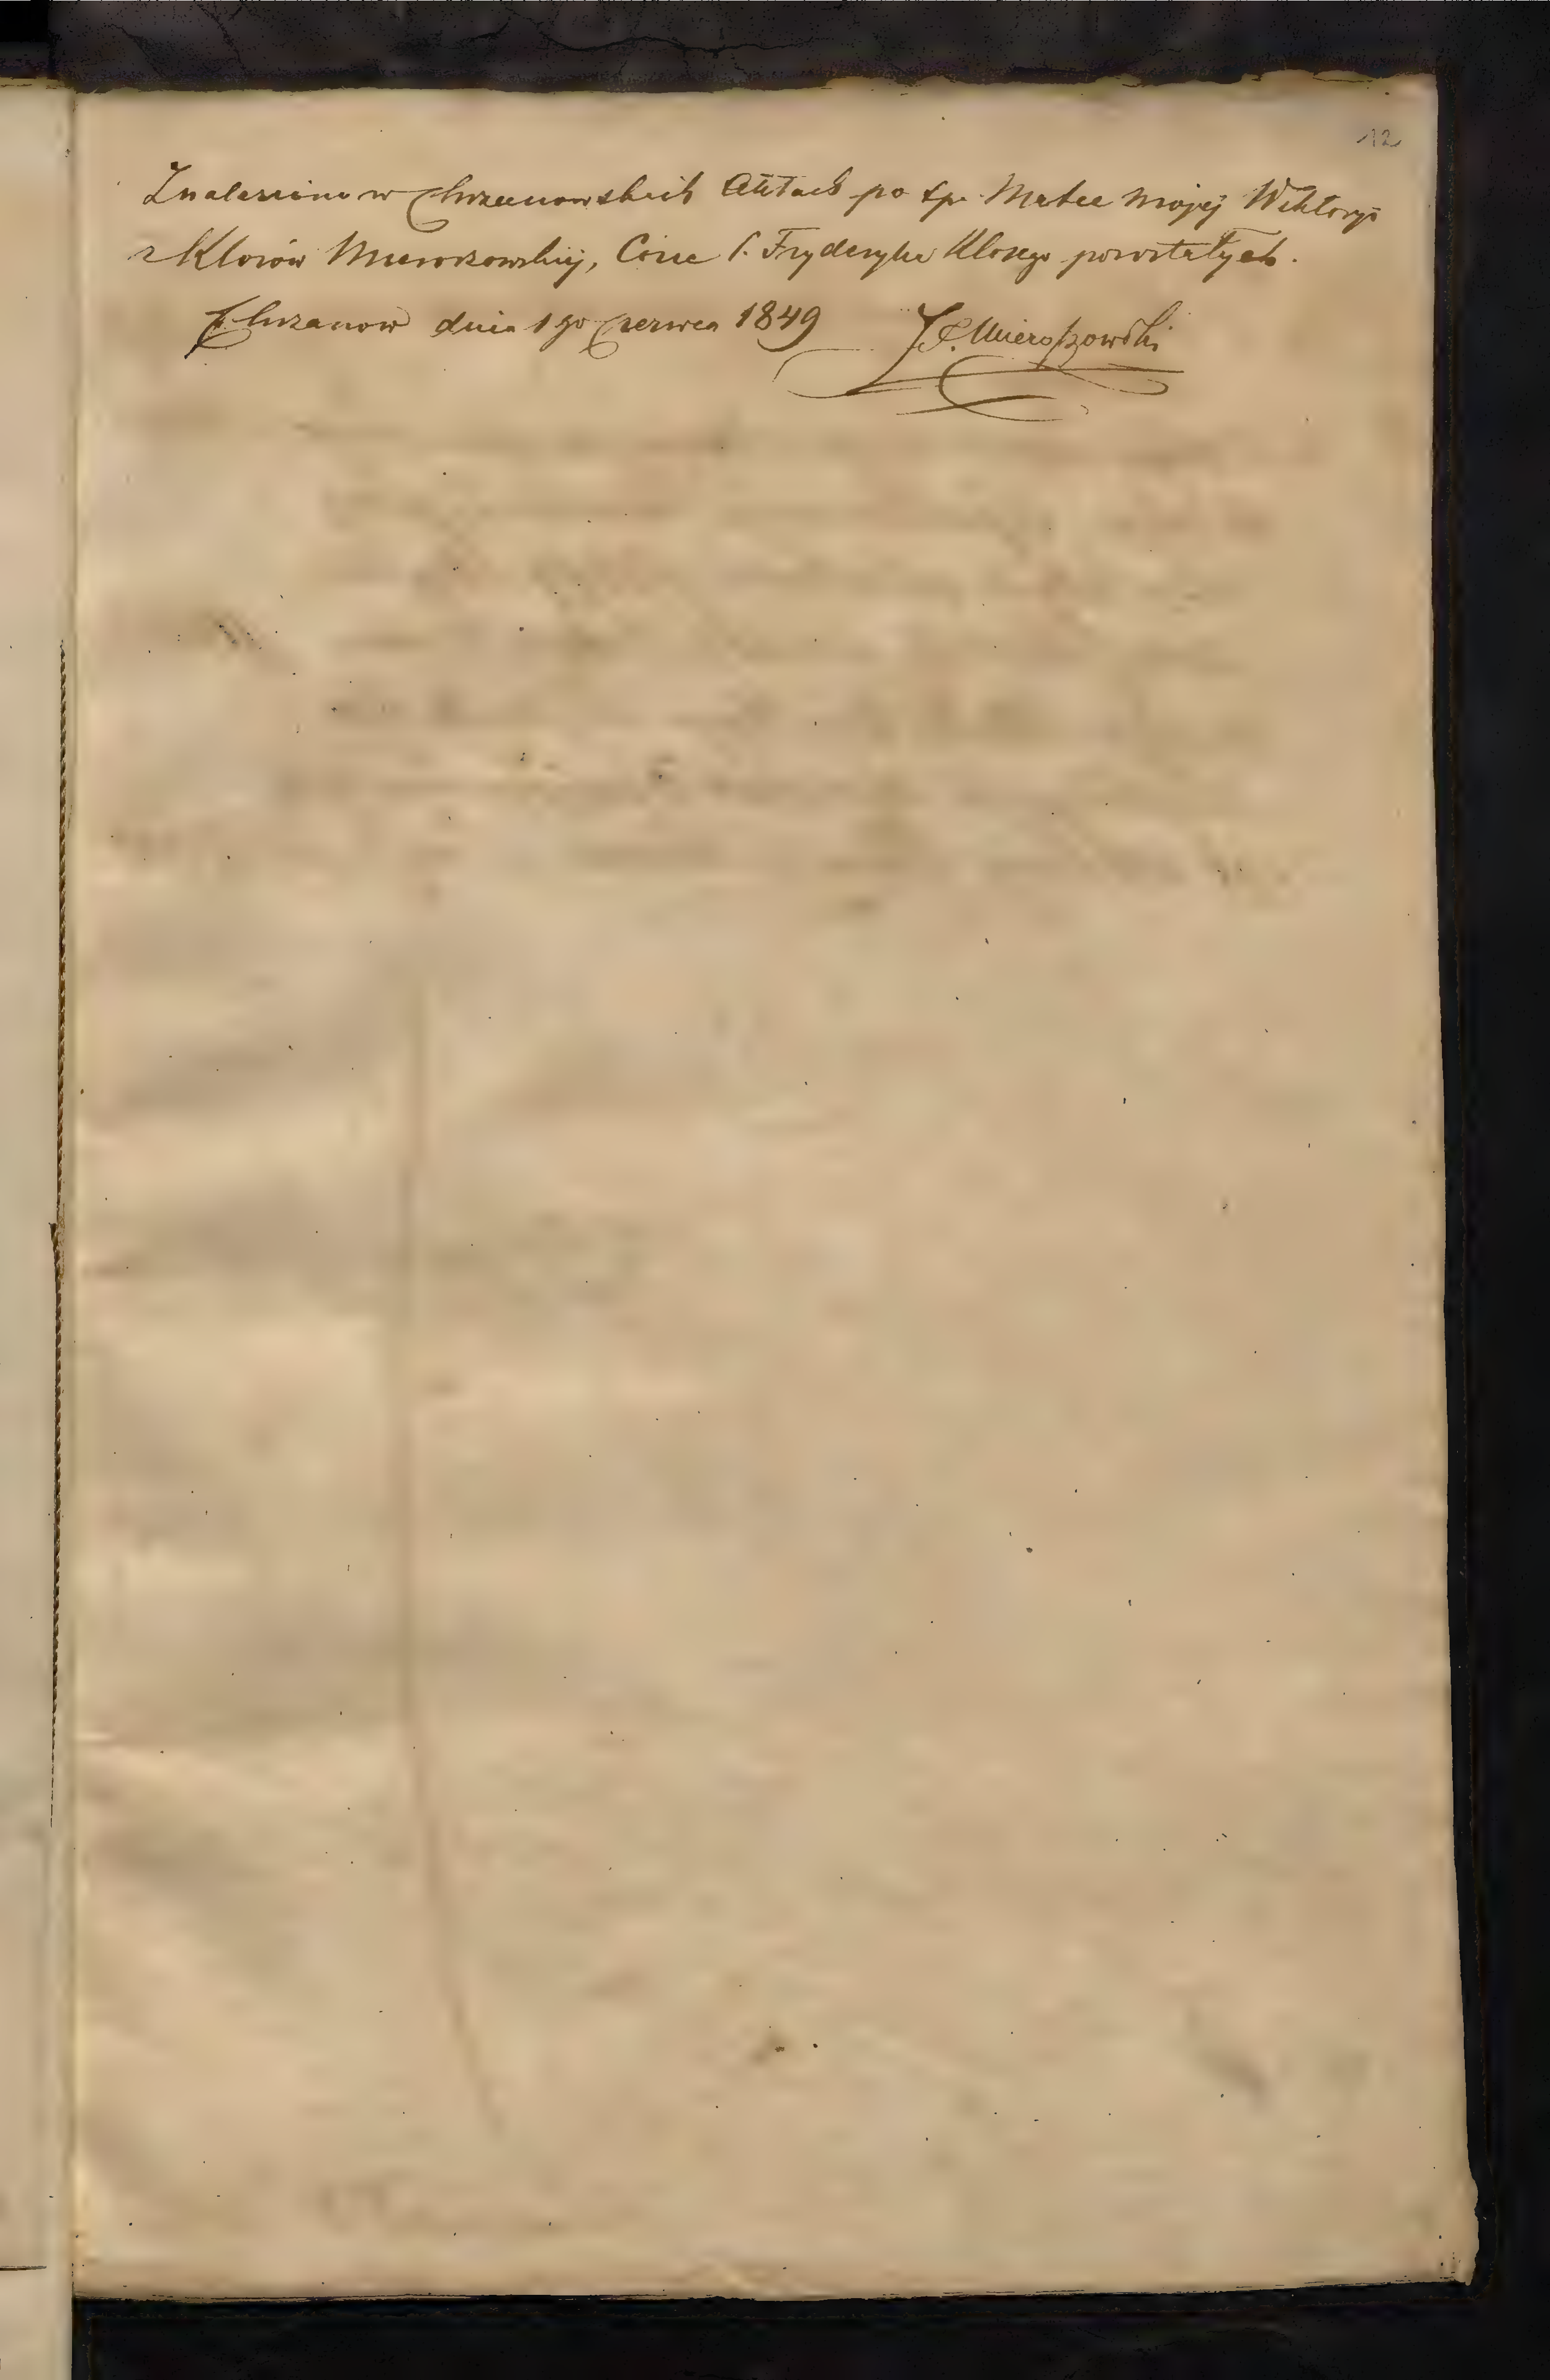 12
Znalezione w Chrzanowskich Aktach po śp. Matce mojej Wiktoryi
z Klosów Mieroszowskiej, Córce ś. Fryderyka Klosego pozostałych.
Chrzanow dnia 1go Czerwca 1849 Mieroszowski